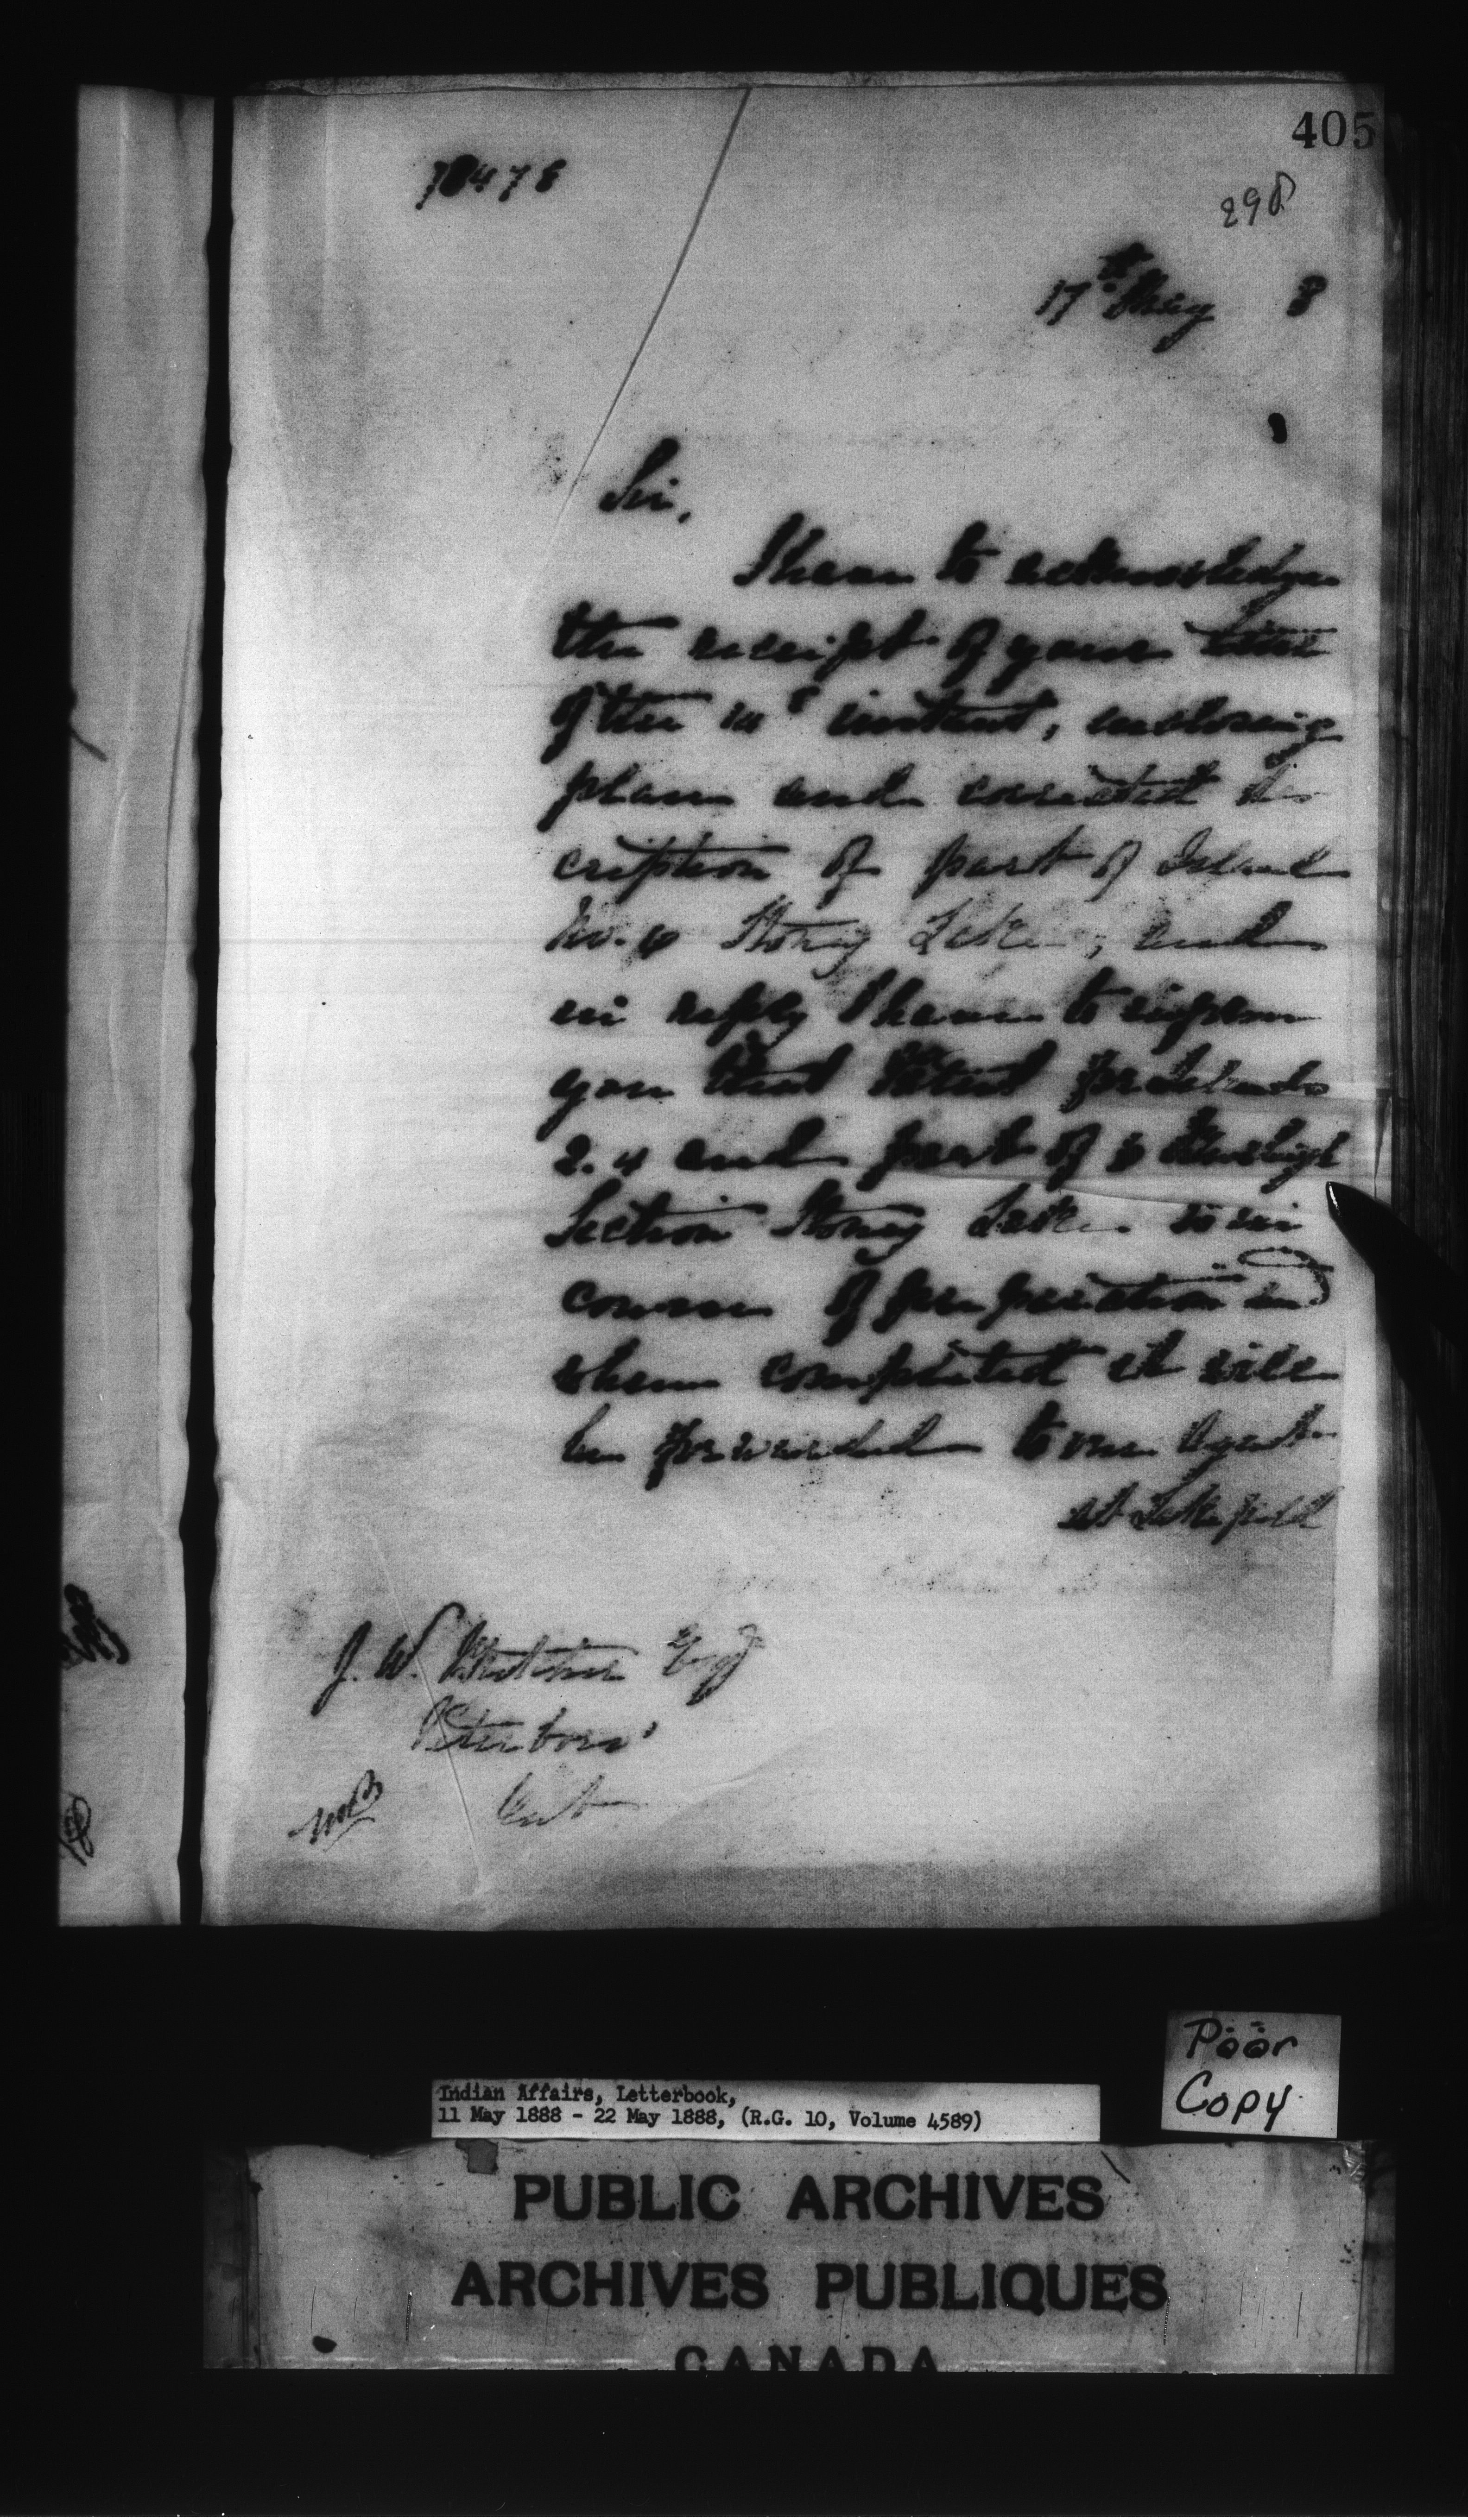 405
298
17th May 8
Sir,
I have to acknowledge
the receipt of your letter
of the instant, enclosing
plan and corrected des
cription of part of Island
No. 6 Stoney Lake, and
in reply I have to inform
you that Patent for Islands
2. 4 and part of 6 Burleigh
Section Stoney Lake is in
course of preparation and
when completed it will
be forwarded to our Agent
at Lakefield
J. W. Esqr
Peterboro'
Ont
Poor
Copy
Indian Affairs, Letterbook,
11 May 1888 - 22 May 1888, (R.G. 10, Volume 4589)
PUBLIC ARCHIVES
ARCHIVES PUBLIQUES
CANADA